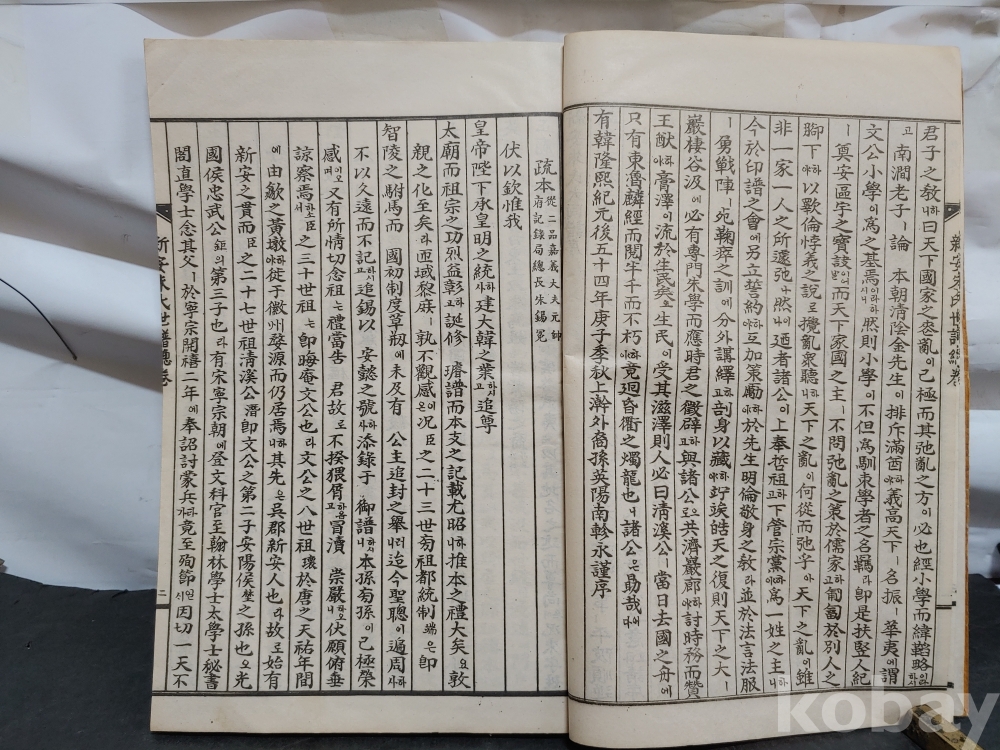 君子之敎니하曰天下國家之炎亂이己極而其弛亂之方이必也經小學而緯韜略인일
고南澗老子ㅣ論本朝淸陰金先生이排斥滿酋야하義高天下ㅣ名振ㅣ華夷에謂
文公小學이爲之基焉이라시하니然則小學이不但爲馴東學者之名羈라卽是扶竪人紀
ㅣ奠安區宇之寶設이어늘而天下家國之主ㅣ不問弛亂之策於儒家고하匍匐於別人之
脚下야하以歝倫悖義之說로攪亂衆聽니하天下之亂이何從而弛乎아天下之亂이雖
非一家一人之所遽弛나然이나迺者諸公이上奉哲祖고하下管宗黨야하爲一姓之主니
今於印譜之會에另立誓約야하互加策勵야하於先生明倫敬身之敎라並於法言法服
ㅣ勇戰陣ㅣ宛鞠瘁之訓에分外講繹고하剖身以藏야하竚竢皓天之復則天下之大ㅣ
巖棲谷汲에必有專門朱學而應時君之徵辟하與諸公으로共濟巖廊야하討時務而贊
王猷야하膏澤이流於生民矣오生民이受其滋澤則人必曰淸溪公ㅣ當日去國之舟에
只有東魯麟經而閱牛千而不朽이하竟廻昏衢之燭龍也니諸公은勗哉어다
有韓隆熙紀元後五十四年庚子季秋上澣外裔孫英陽南軫永謹序
新安朱氏世譜總卷
疏本 從二品嘉義大夫元帥府記錄局總長朱錫冕
伏以欽惟我
皇帝陛下承皇明之統사하建大韓之業고하시追尊
太廟而祖宗之功烈益彰고하誕修 璿譜而本支之記載尤昭니하推本之禮大矣요敦
親之化至矣라匝域黎庶ㅣ孰不觀感은이況臣之二十三世旁祖都統制端은卽
智陵之駙馬而 國初制度草刱에未及有 公主追封之擧니러迄今聖聰이遍周사하
不以久遠而不記고하시追錫以 安懿之號사하添錄于 御譜니하시本孫旁孫이已極榮
感이오며又有所情切念祖는禮當告 君故로不揆猥屑고하옵冒瀆 崇嚴니하오伏願俯垂
諒察焉서하소臣之三十世祖는卽晦庵文公也라文公之八世祖瓌於唐之天祐年間
에由歙之黃墩야하徙于徽州婺源而仍居焉니하其先은吳郡新安人也라故로始有
新安之貫而臣之二十七世祖淸溪公潛卽文公之第二子安陽侯埜之孫也오光
國侯忠武公鉅의第三子也라有宋寧宗朝에登文科官至翰林學士太學士祕書
閣直學士念其父ㅣ於寧宗開禧二年에奉詔討蒙兵가라竟至殉節시인因切一天不
新安朱氏世譜總卷
二
kobay